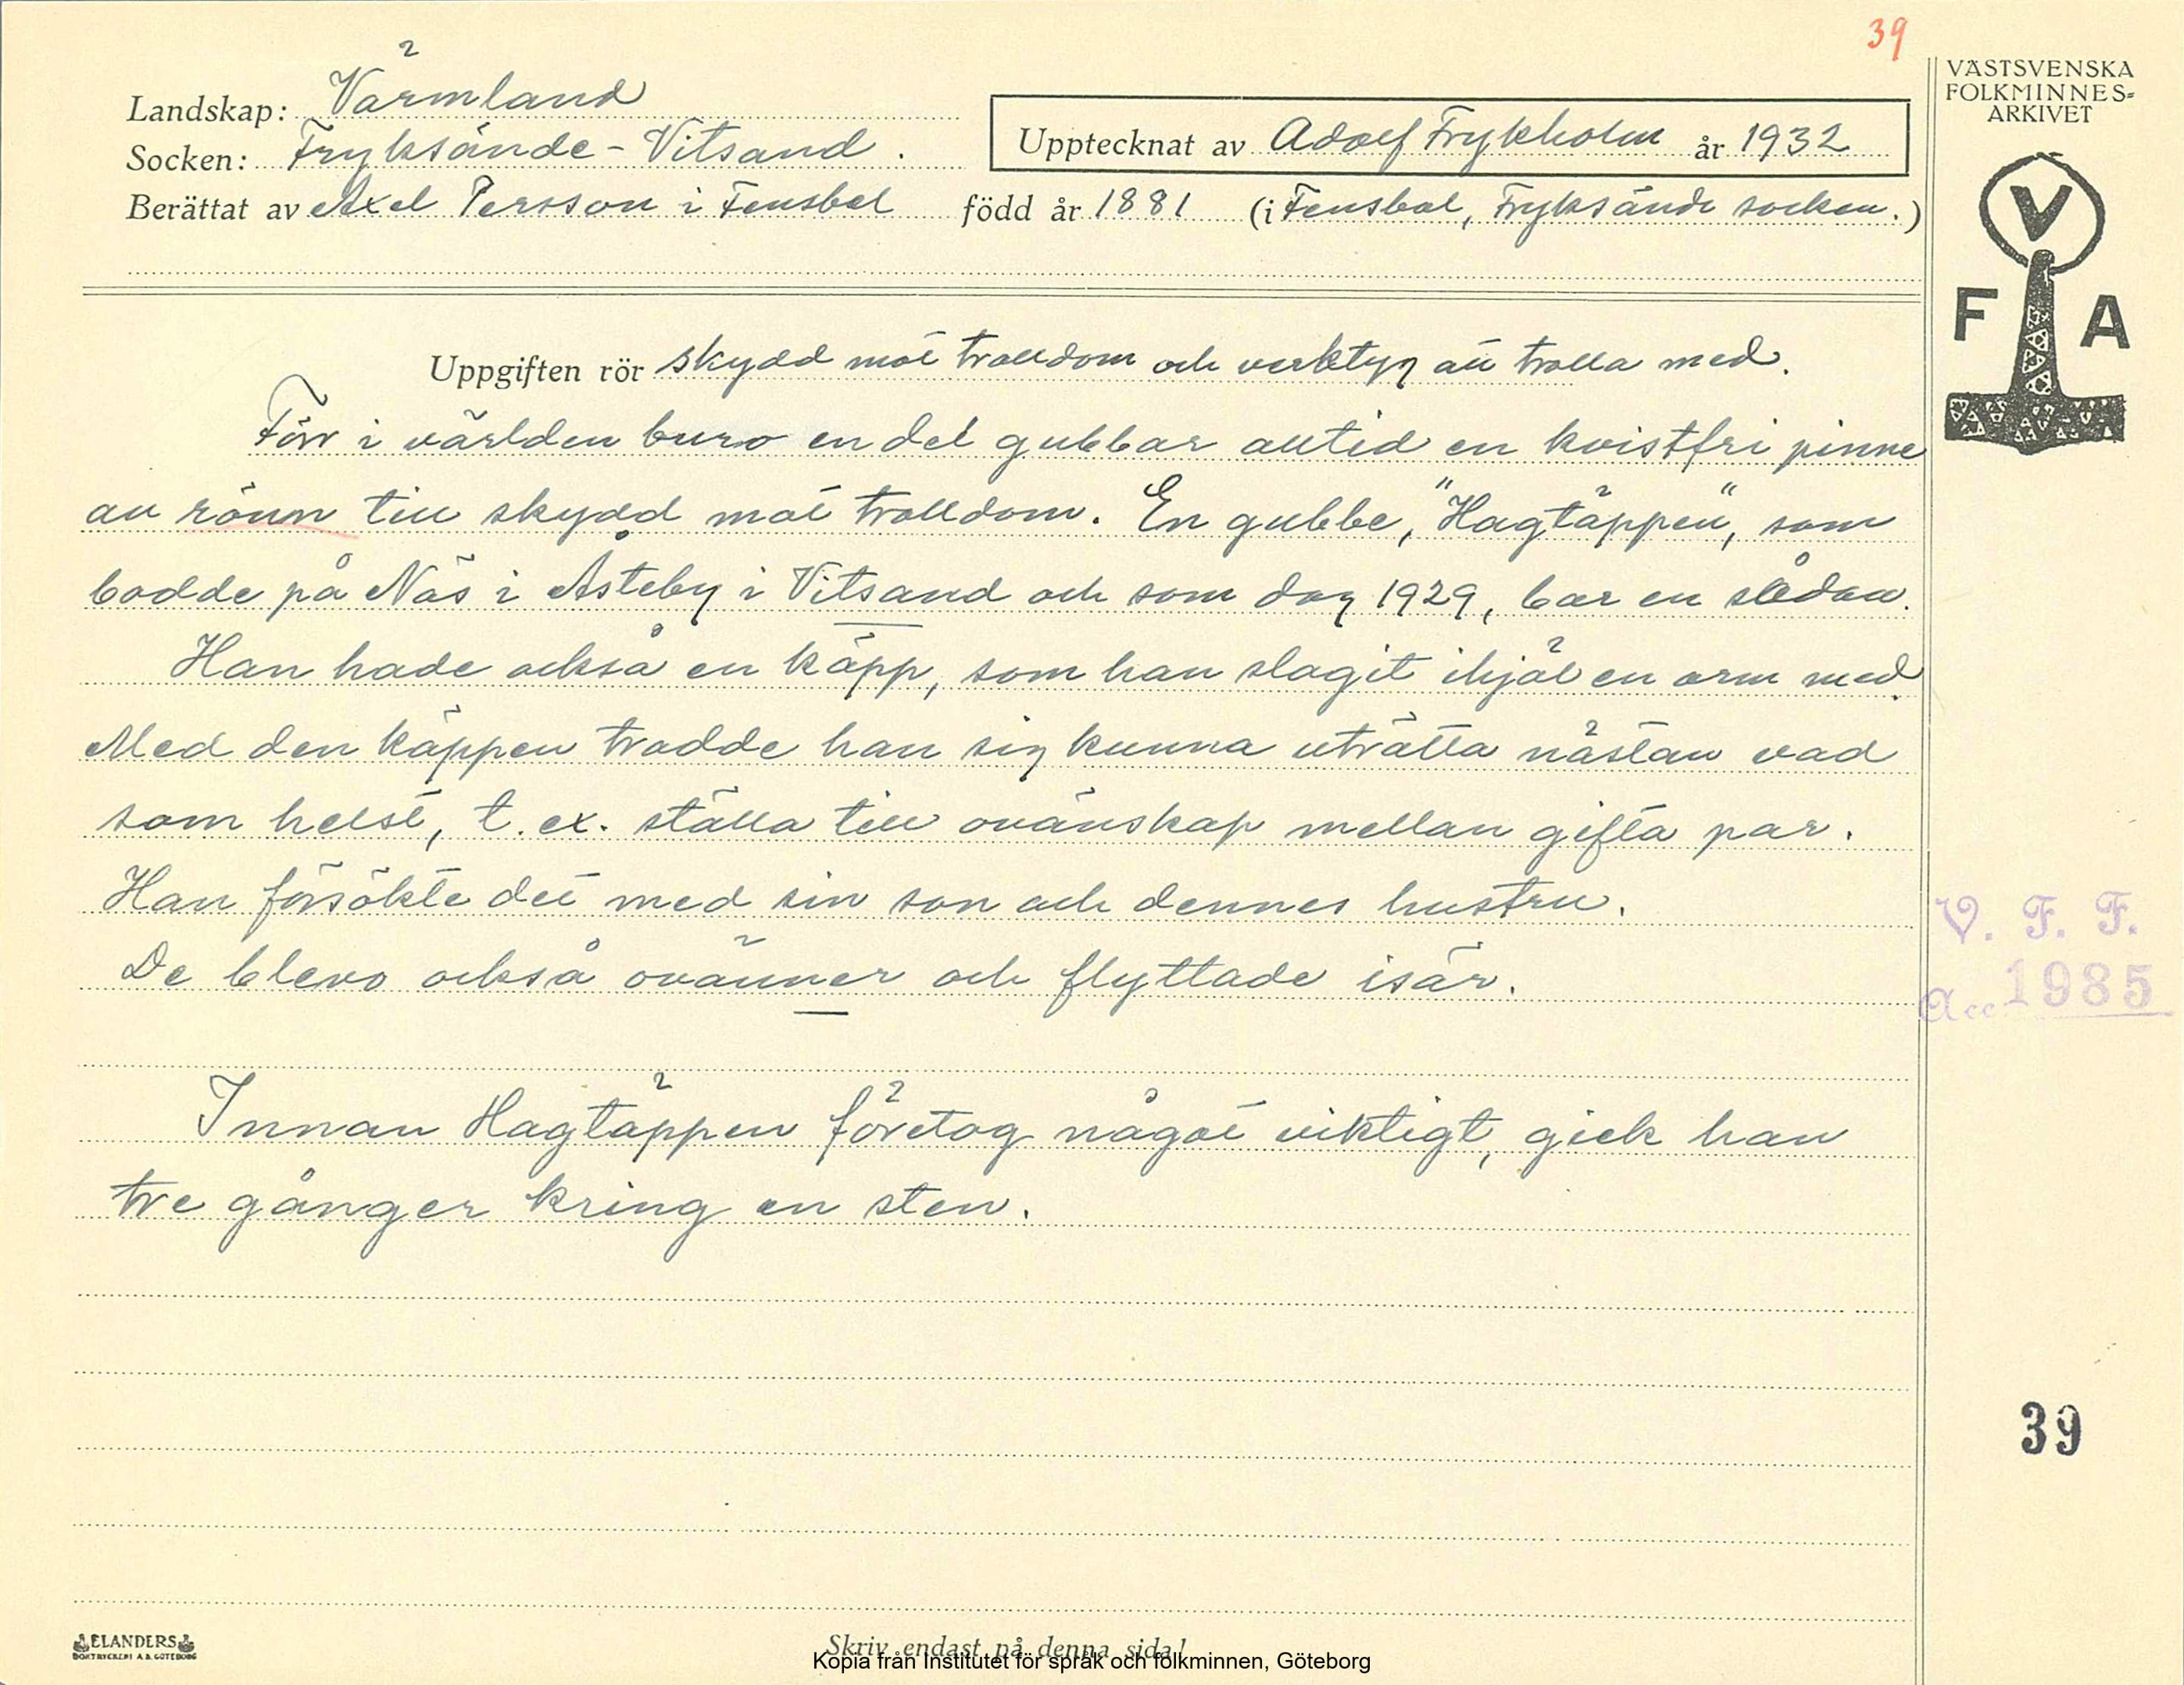 39
Landskap: Värmland
Socken: Fryksände-Vitsand.
Berättat av Axel Persson i Fensbol född år 1881 (i Fensbol, Fryksände socken.)
Upptecknat av Adolf Frykholm år 1932
VÄSTSVENSKA
FOLKMINNES=
ARKIVET
V
F A
Uppgiften rör skydd mot trolldom och verktyg att trolla med.
Förr i världen buro en del gubbar alltid en kvistfri pinne
av rönn till skydd mot trolldom. En gubbe, "Hagtäppen", som
bodde på Näs i Åsteby i Vitsand och som dog 1929, bar en sådan.
Han hade också en käpp, som han slagit ihjäl en orm med.
Med den käppen trodde han sig kunna uträtta nästan vad
som helst, t. ex. ställa till ovänskap mellan gifta par.
Han försökte det med sin son och dennes hustru.
De blevo också ovänner och flyttade isär.
V. F. F.
Acc. 1985
Innan Hagtäppen företog något viktigt, gick han
tre gånger kring en sten.
39
ELANDERS
BOKTRYCKERI A.B. GÖTEBORG
Skriv endast på denna sida!
Kopia från Institutet för språk och folkminnen, Göteborg